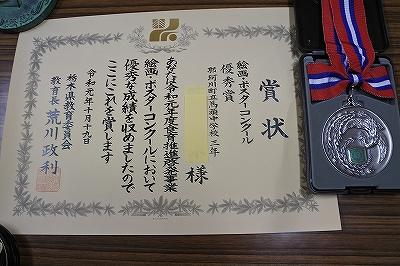 賞状
絵画・ポスターコンクール
優秀賞
那珂川町立馬頭中学校 三年
様
あなたは令和元年度食育推進啓発事業
絵画・ポスターコンクールにおいて
優秀な成績を収めましたので
ここにこれを賞します
令和元年十月十九日
栃木県教育委員会
教育長 荒川政利